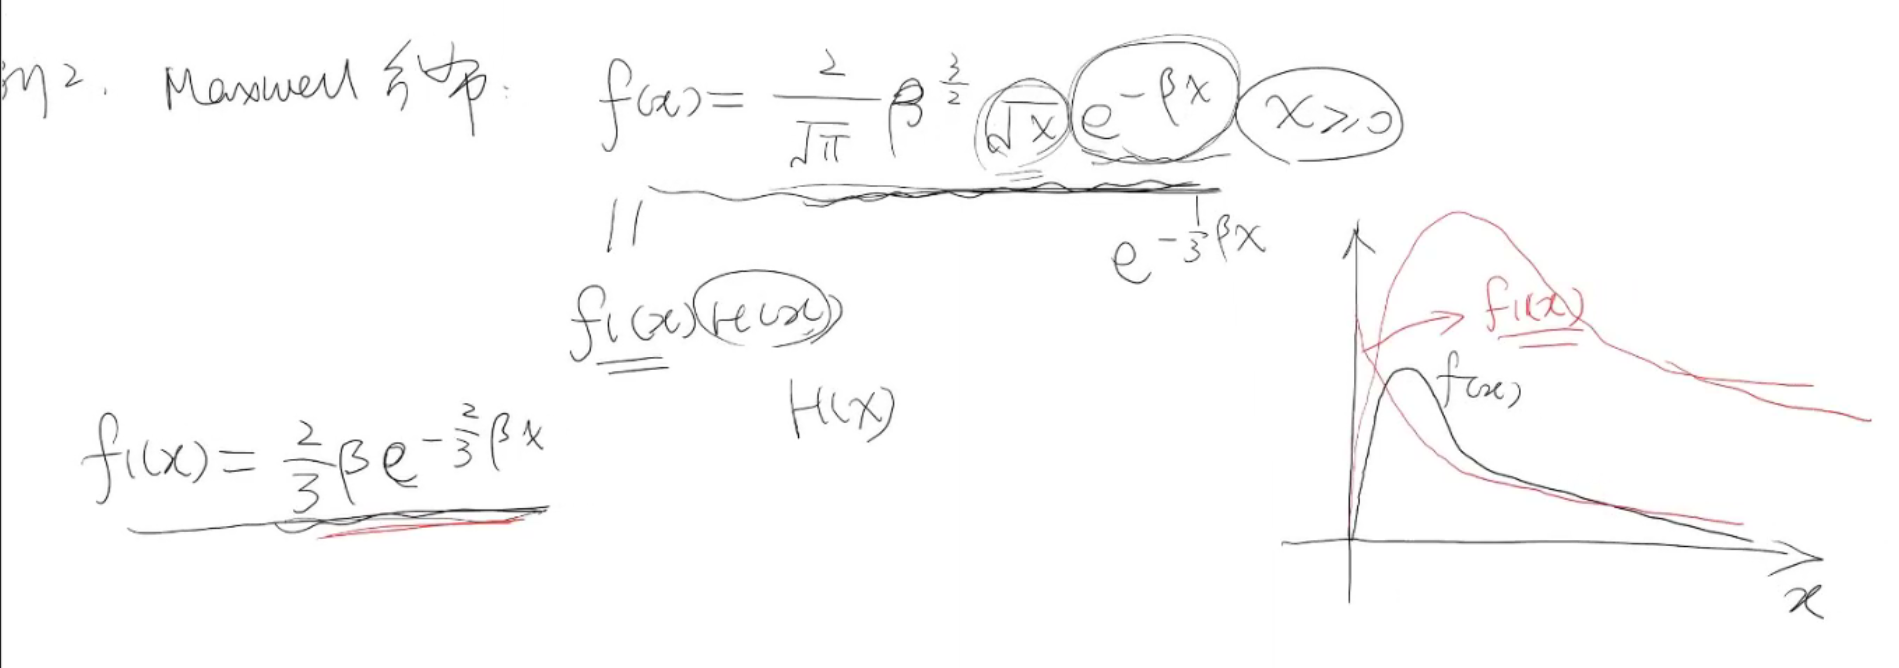 例2. Maxwell 分布: f(x) = \frac{2}{\sqrt{π}} β^{\frac{3}{2}} \sqrt{x} e^{-βx} x ≥ 0
||
e^{-\frac{1}{3}βx}
f₁(x) H(x)
H(x)
f₁(x) = \frac{2}{3} β e^{-\frac{2}{3}βx}
f₁(x)
f(x)
x